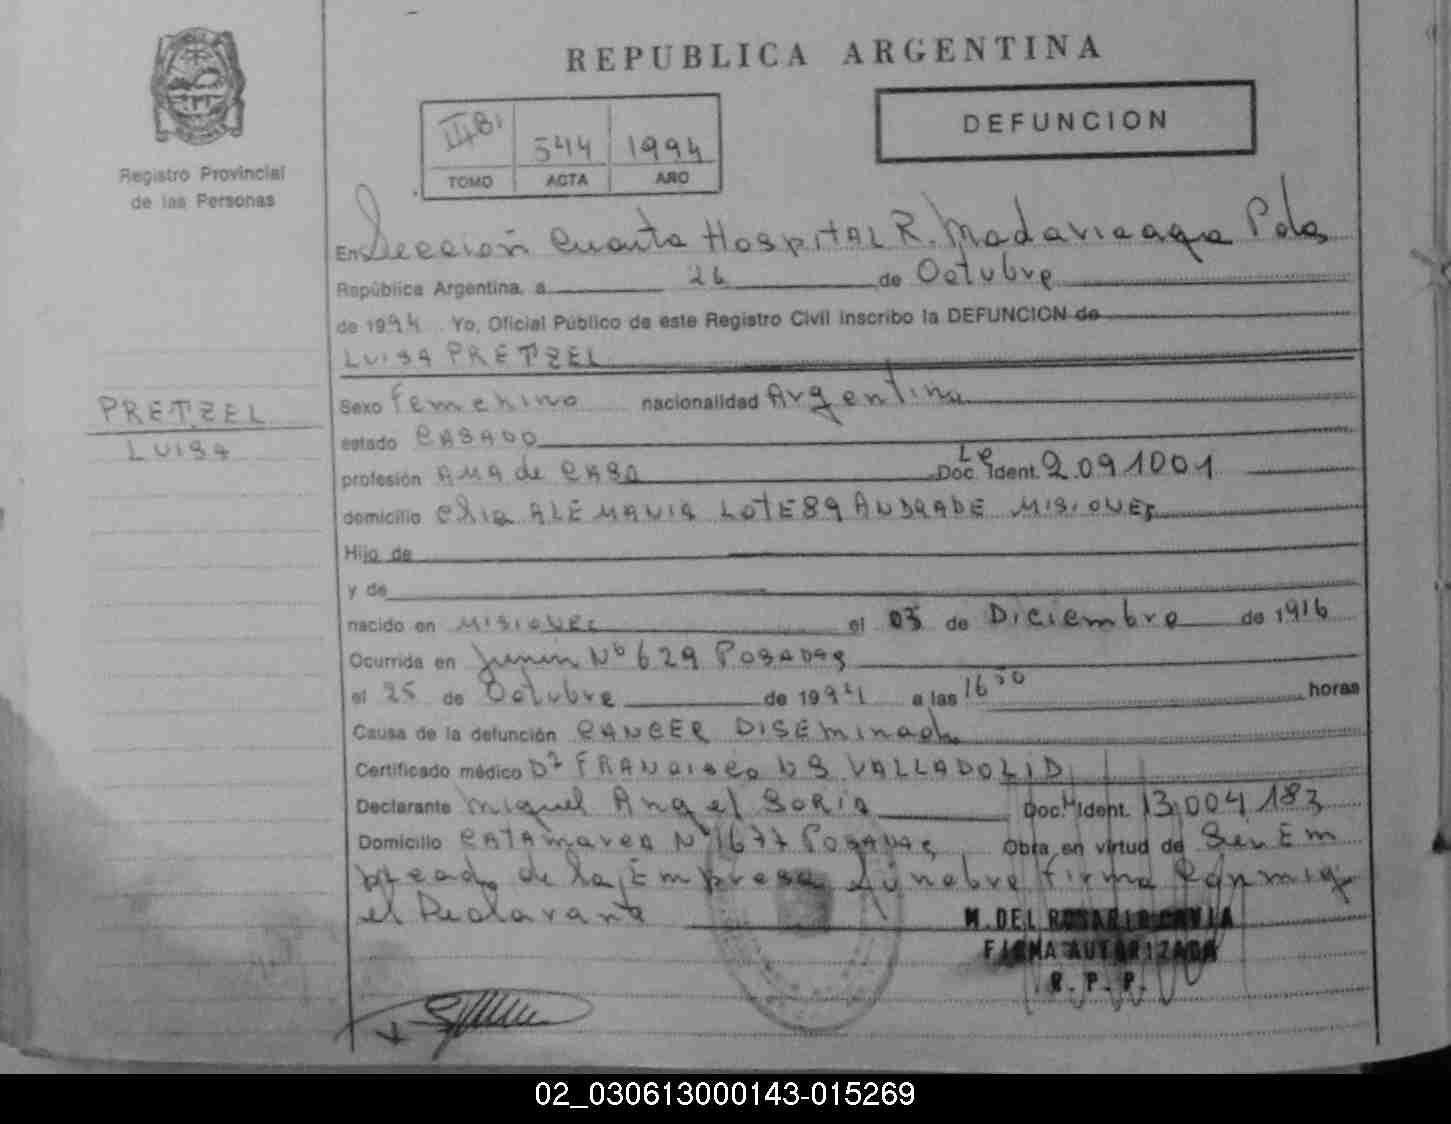 REPUBLICA ARGENTINA
DEFUNCION
Registro Provincial
de las Personas
544 1994
TOMO ACTA AÑO
En Sección Cuarta Hospital R. Madariaaga Pdas
República Argentina, a 26 de Octubre
de 1994 Yo, Oficial Público de este Registro Civil inscribo la DEFUNCION de
LUISA PRETZEL
PRETZEL
LUISA
Sexo Femenino nacionalidad Argentina
estado CASADO
profesión AMA de CASA Doc. Ident. 2.091001
domicilio ALEMANIA LOTE 89 ANDRADE MISIONES
Hijo de
y de
nacido en MISIONES el 03 de Diciembre de 1916
Ocurrida en Junin Nº 629 POSADAS
el 25 de Octubre de 1994 a las 16 30 horas
Causa de la defunción CANCER DISEminado
Certificado médico Dr FRANCISCO VALLADOLID
Declarante Miguel Angel SORIA Doc. Ident. 13.004.183
Domicilio CATAMARCA Nº 1677 POSADAS Obra en virtud de Ser Em
pleado de la Empresa Fúnebre firma Conmigo
el Declarante
M. DEL ROSARIO CAVIA
FIRMA AUTORIZADA
R. P. P.
02_030613000143-015269